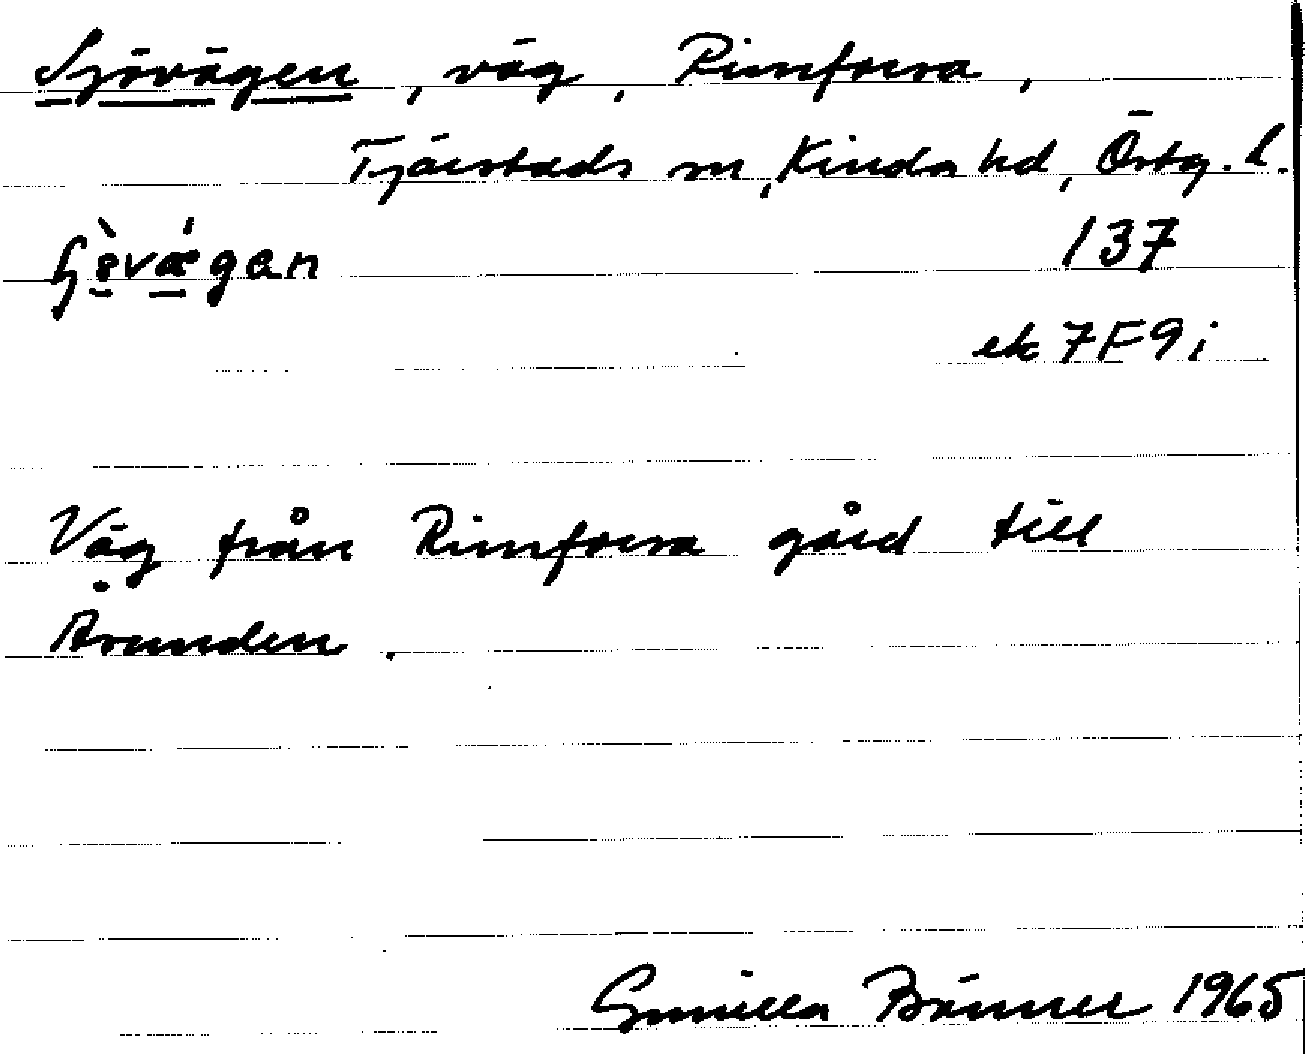 Sjövägen, väg, Rimforsa,
Tjärstads sn, Kinda hd, Östg. l.
137
ek 7F9i
Väg från Rimforsa gård till
Ärunden.
Gunilla Bänner 1965